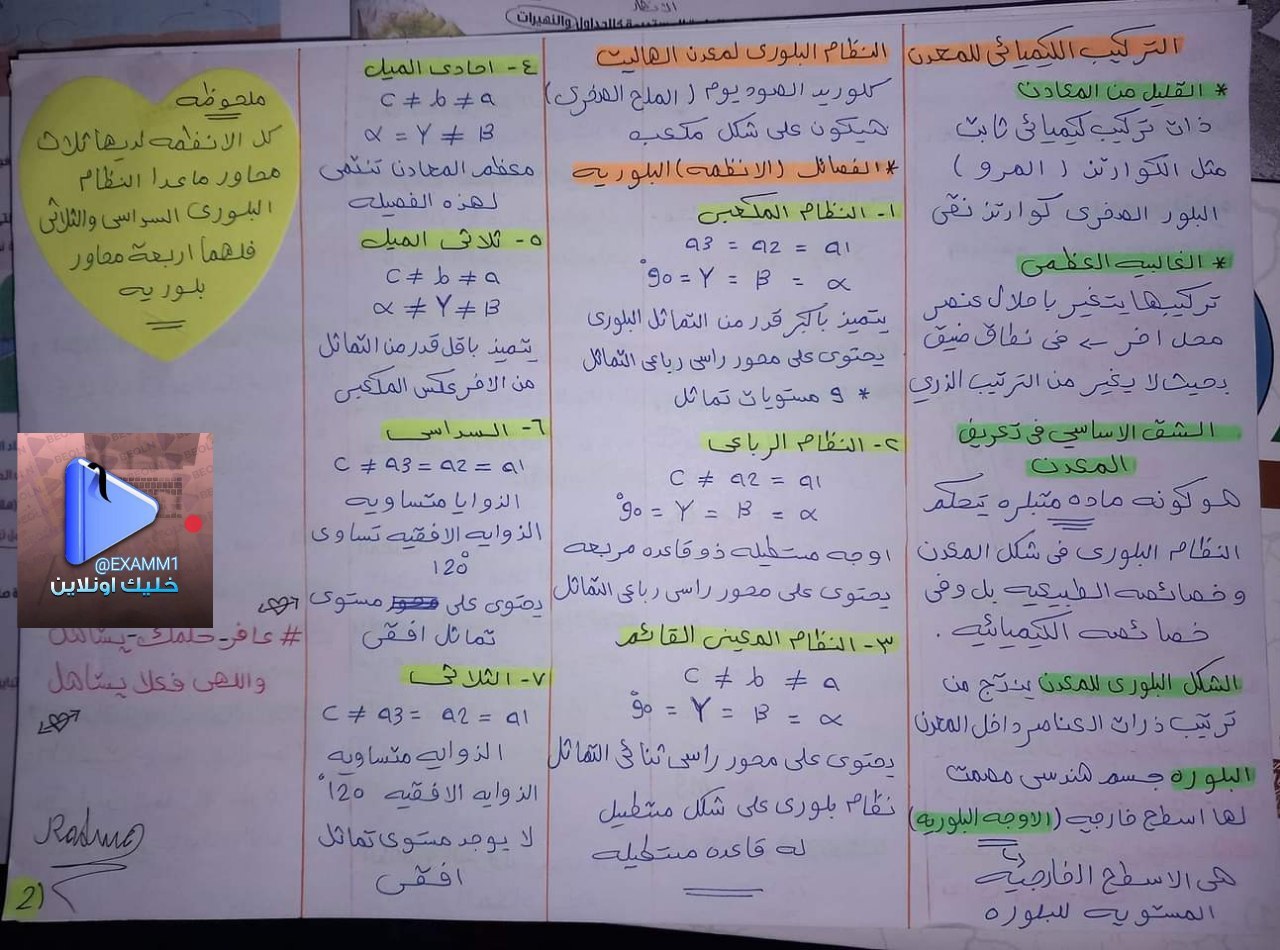 التركيب الكيميائى للمعدن
* القليل من المعادن
ذات تركيب كيميائى ثابت
مثل الكوارتز (المرو)
البلور الصخرى كوارتز نقى
* الغالبيه العظمى
تركيبها يتغير باحلال عنصر
محل اخر ← فى نطاق ضيق
بحيث لا يغير من الترتيب الذرى
الشق الاساسي فى تعريف
المعدن
هو كونه ماده متبلره يتحكم
النظام البلورى فى شكل المعدن
وخصائصه الطبيعيه بل وفى
خصائصه الكيميائيه.
الشكل البلورى للمعدن ينتج من
ترتيب ذرات العناصر داخل المعدن
البلوره جسم هندسى مصمت
لها اسطح خارجيه (الاوجه البلوريه)
هى الاسطح الخارجيه
المستويه للبلوره
النظام البلورى لمعدن الهاليت
كلوريد الصوديوم (الملح الصخرى)
هيكون على شكل مكعب
* الفصائل (الانظمه) البلوريه
١- النظام المكعبى
a3 = a2 = a1
90° = γ = β = α
يتميز باكبر قدر من التماثل البلورى
يحتوى على محور راسى رباعى التماثل
* 9 مستويات تماثل
٢- النظام الرباعى
C ≠ a2 = a1
90° = γ = β = α
اوجه مستطيله ذو قاعده مربعه
يحتوى على محور راسى رباعى التماثل
٣- النظام المعينى القائم
C ≠ b ≠ a
90° = γ = β = α
يحتوى على محور راسى ثنائى التماثل
نظام بلورى على شكل مستطيل
له قاعده مستطيله
٤- احادى الميل
C ≠ b ≠ a
α = γ ≠ β
معظم المعادن تنتمى
لهذه الفصيله
٥- ثلاثى الميل
C ≠ b ≠ a
α ≠ γ ≠ β
يتميز باقل قدر من التماثل
من الاخر عكس المكعبى
٦- السداسى
C ≠ a3 = a2 = a1
الزوايا متساويه
الزوايه الافقيه تساوى
120°
يحتوى على مستوى
تماثل افقى
٧- الثلاثى
C ≠ a3 = a2 = a1
الزوايه متساويه
الزوايه الافقيه 120°
لا يوجد مستوى تماثل
افقى
ملحوظه
كل الانظمه لديها ثلاث
محاور ماعدا النظام
البلورى السداسى والثلاثى
فلهما اربعة محاور
بلوريه
@EXAMM1
خليك اونلاين
#عافر_حلمك_يستاهل
واللهى فعلا يستاهل
Radwa
2)